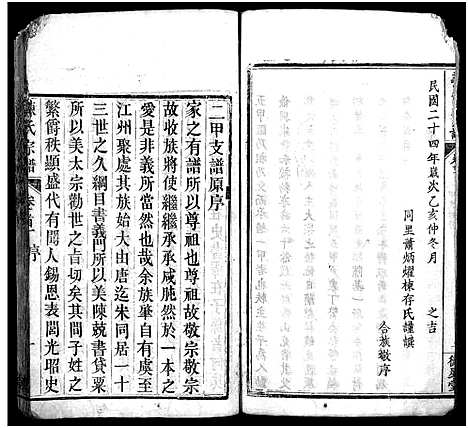 民國二十四年歲次乙亥仲冬月
之吉
同里蕭炳耀棟存氏謹譔
合族敬序
二甲支譜原序
家之有譜所以尊祖也尊祖故敬宗敬宗
故收族將使繼繼承承戚戚然於一本之
愛是非義所當為者哉余族肇自有虞至
江州聚處其族始大由唐迄宋同居一十
三世之久綱目書義門所以美陳兢書貸粟
所以美太宗勸世之至也其間子姓之
繁爵秩顯盛代有聞人錫恩表閭光昭史
陳氏宗譜
卷首
序